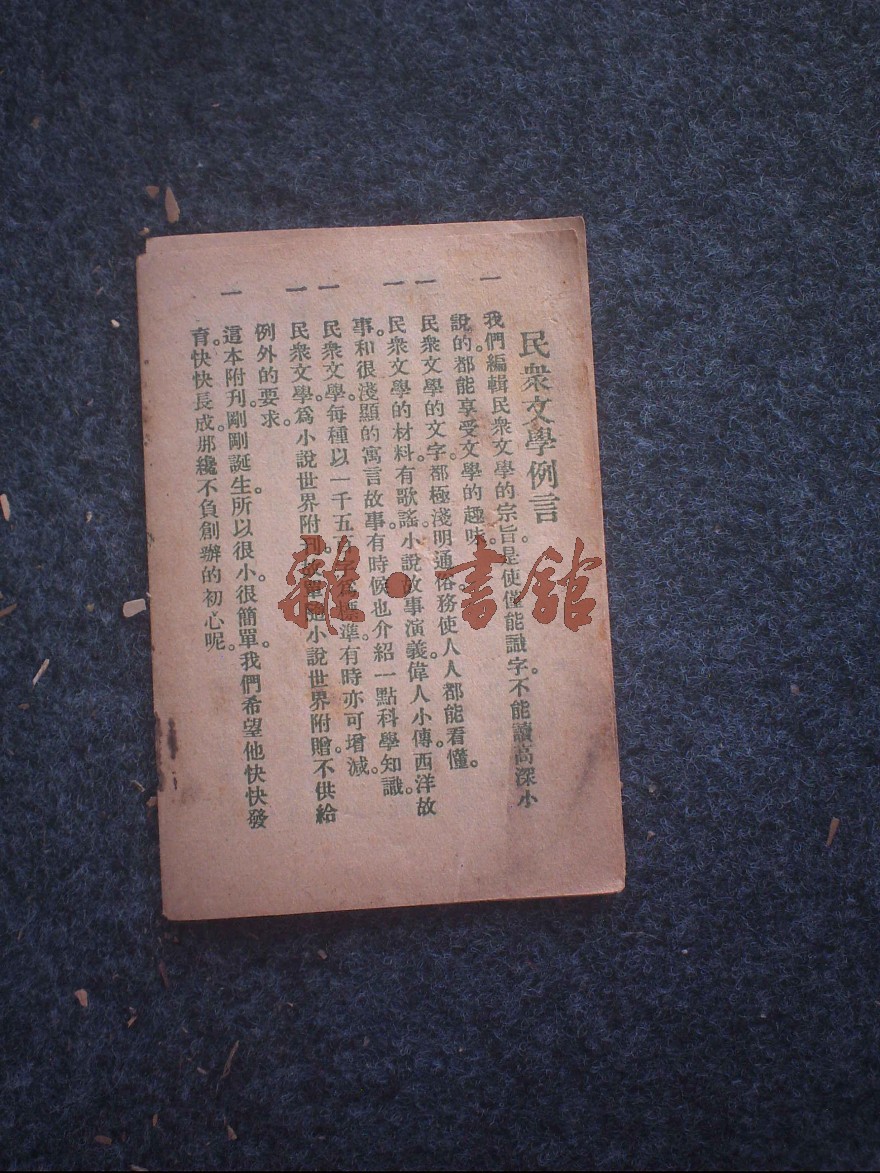 民衆文學例言
一 我們編輯民衆文學的宗旨。是使僅能識字不能讀高深小
說的。都能享受文學的趣味。
一 民衆文學的文字。都極淺明通俗。務使人人都能看懂。
一 民衆文學的材料。有歌謠。小說。故事。演義。偉人小傳。西洋故
事。和很淺顯的寓言故事。有時候也介紹一點科學知識。
一 民衆文學。每種以一千五百字爲標準。有時亦可增減。
一 民衆文學。爲小說世界附刊。 小說世界附贈。不供給
例外的要求。
一 這本附刊。剛剛誕生。所以很小。很簡單。我們希望他快快發
育。快快長成。那纔不負創辦的初心呢。
雜·書館